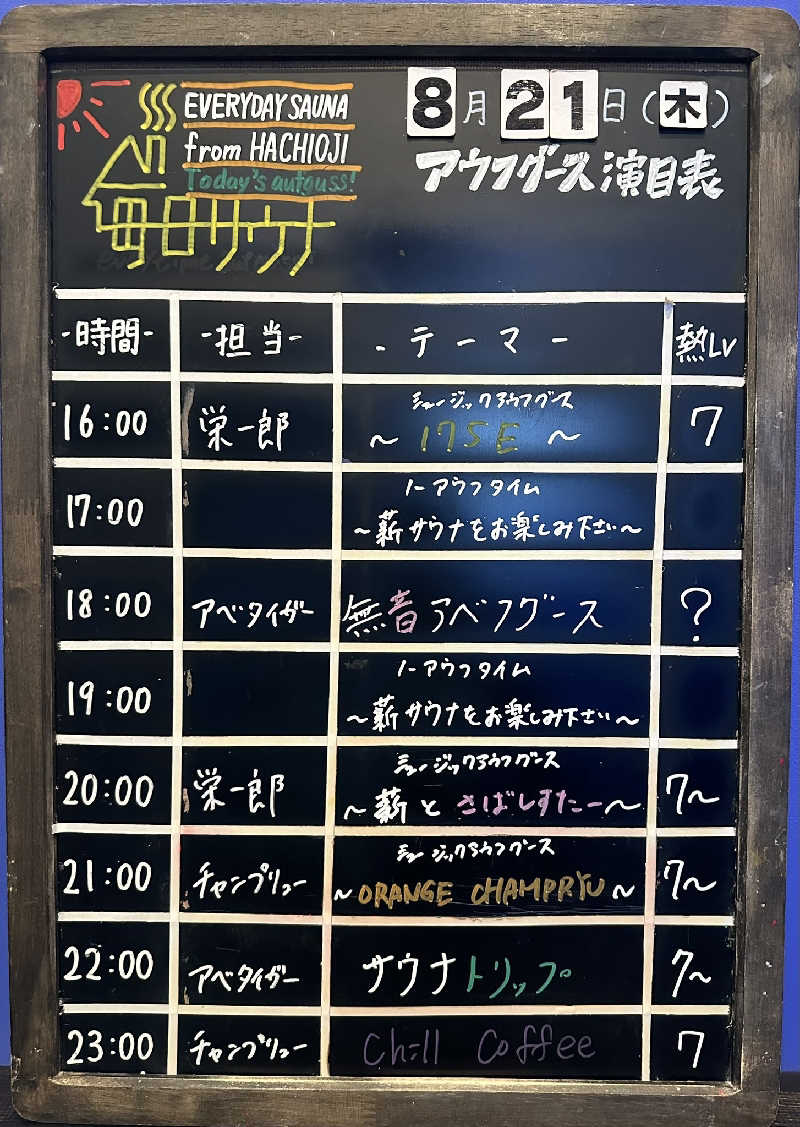 EVERYDAY SAUNA
from HACHIOJI
Today's aufguss!
毎日サウナ
8月21日(木)
アウフグース演目表
-時間- -担当- -テーマ- 熱LV
16:00 栄一郎 ミュージックアウフグース 7
~ 175E ~
17:00 ノーアウフタイム
~薪サウナをお楽しみ下さい~
18:00 アベタイザー 無音アベフグース ?
19:00 ノーアウフタイム
~薪サウナをお楽しみ下さい~
20:00 栄一郎 ミュージックアウフグース 7~
~薪とさばしすたー~
21:00 チャンプリュー ミュージックアウフグース 7~
~ORANGE CHAMPRYU~
22:00 アベタイザー サウナトリップ 7~
23:00 チャンプリュー Chill Coffee 7